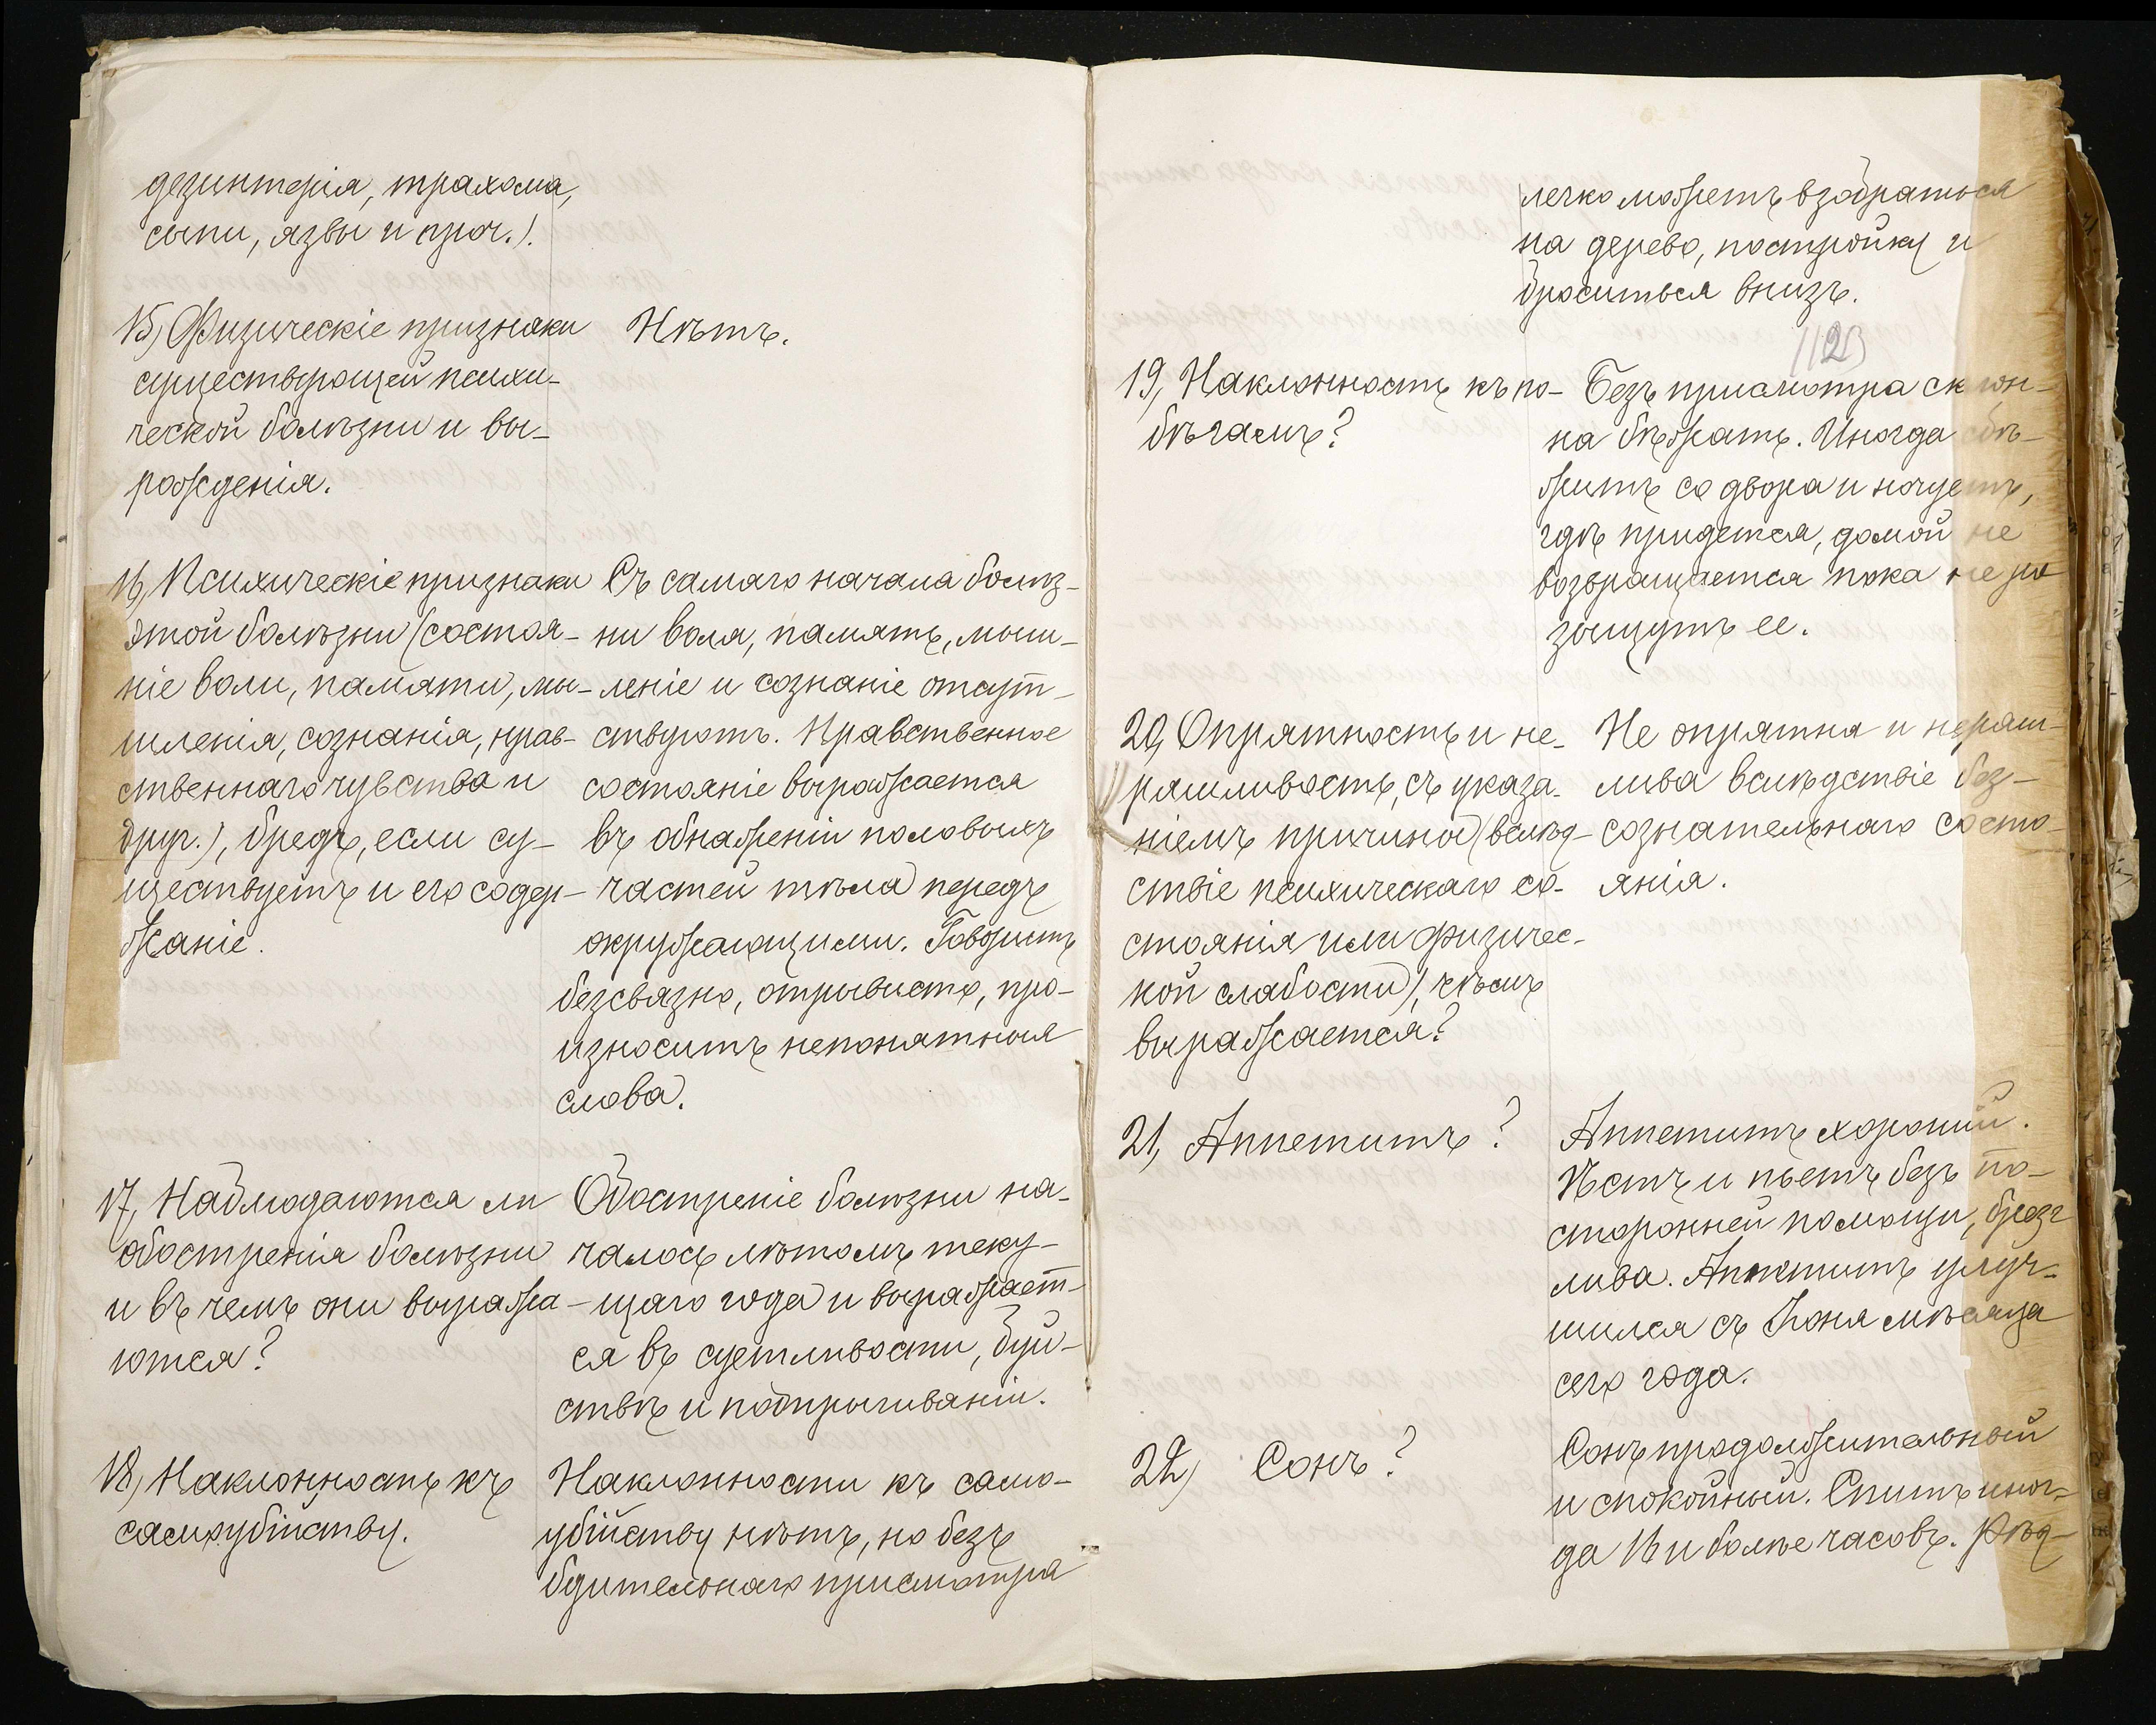 дезинтерія, трахома,
сыпи, язвы и проч.).
15, Физическіе признаки
существующей психи-
ческой болѣзни и вы-
рожденія.
Нѣтъ.
16, Психическіе признаки
этой болѣзни (состоя-
ніе воли, памяти, мы-
шленія, сознанія, нрав-
ственнаго чувства и
друг.), бредъ, если су-
ществуетъ и его содер-
жаніе.
Съ самаго начала болѣз-
ни воля, память, мыш-
леніе и сознаніе отсут-
ствуютъ. Нравственное
состояніе выражается
въ обнаженіи половыхъ
частей тѣла передъ
окружающими. Говоритъ
безсвязно, отрывисто, про-
износитъ непонятныя
слова.
17, Наблюдаются ли
обостренія болѣзни
и въ чемъ они выража-
ются?
Обостреніе болѣзни на-
чалось лѣтомъ теку-
щаго года и выражает-
ся въ суетливости, буй-
ствѣ и подпрыгиваніи.
18, Наклонность къ
самоубійству.
Наклонности къ само-
убійству нѣтъ, но безъ
бдительнаго присмотра
легко можетъ взобраться
на дерево, постройку и
броситься внизъ.
112
19, Наклонность къ по-
бѣгамъ?
Безъ присмотра склон-
на бѣжать. Иногда сбѣ-
житъ со двора и ночуетъ,
гдѣ придется, домой не
возвращается пока не ра
зыщутъ ее.
20, Опрятность и не-
ряшливость, съ указа-
ніемъ причины (вслѣд-
ствіе психическаго со-
стоянія или физичес-
кой слабости), чѣмъ
выражается?
Не опрятна и неряш-
лива вслѣдствіе без-
сознательнаго состо-
янія.
21, Аппетитъ?
Аппетитъ хорошій.
Ѣстъ и пьетъ безъ по-
сторонней помощи, брезг
лива. Аппетитъ улуч-
шился съ Іюня мѣсяца
сего года.
22, Сонъ?
Сонъ продолжительный
и спокойный. Спитъ иног-
да 16 и болѣе часовъ. Рѣд-